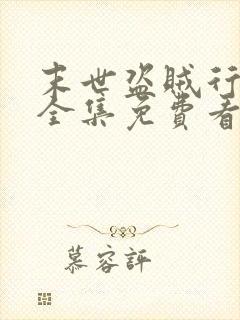 末世盗贼行
全集免费看
慕容評